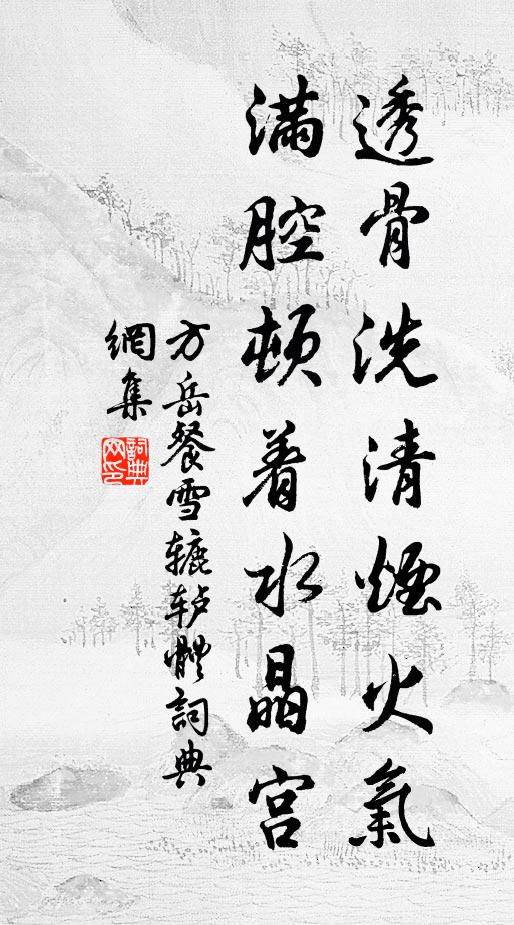 透骨洗清煙火氣
滿腔頓着水晶宮
方岳餐雪辘轳體詞典
網集
詞典
网印